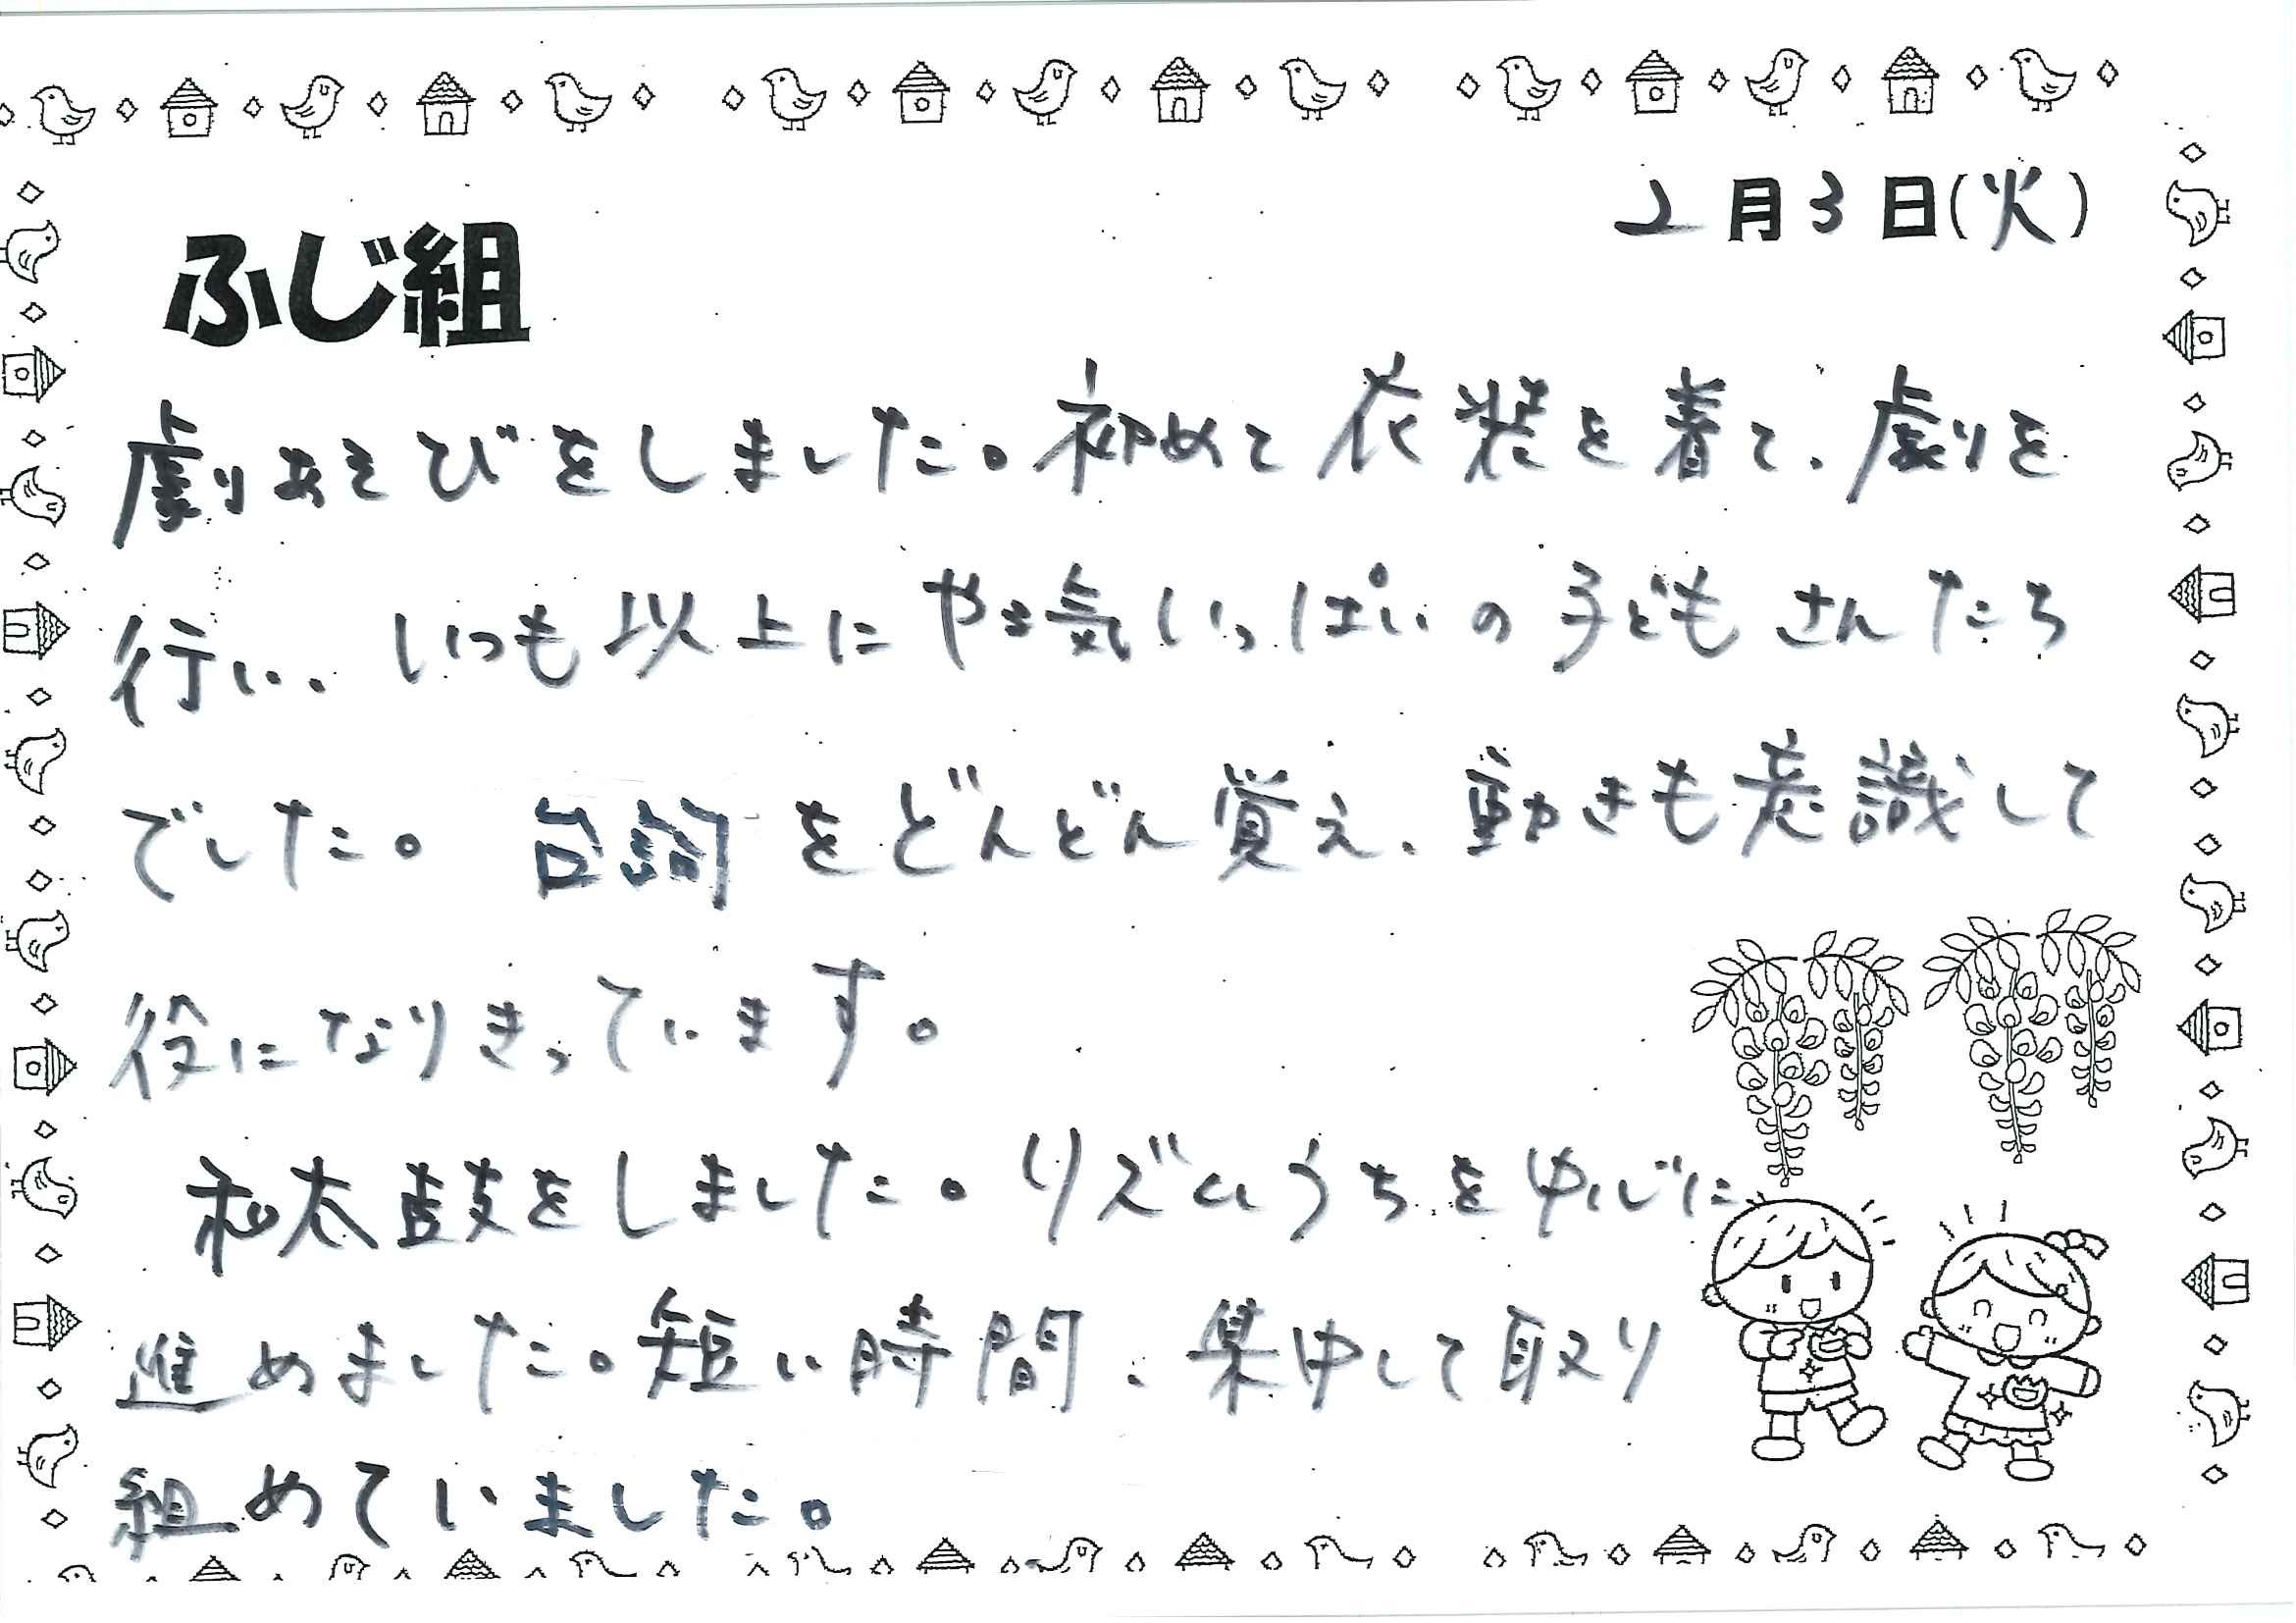 2月3日(火)
ふじ組
劇あそびをしました。初めて衣装を着て、劇を
行い、いつも以上にやる気いっぱいの子どもさんたち
でした。台詞をどんどん覚え、動きも意識して
役になりきっています。
和太鼓をしました。リズムうちを中心に
進めました。短い時間、集中して取り
組めていました。